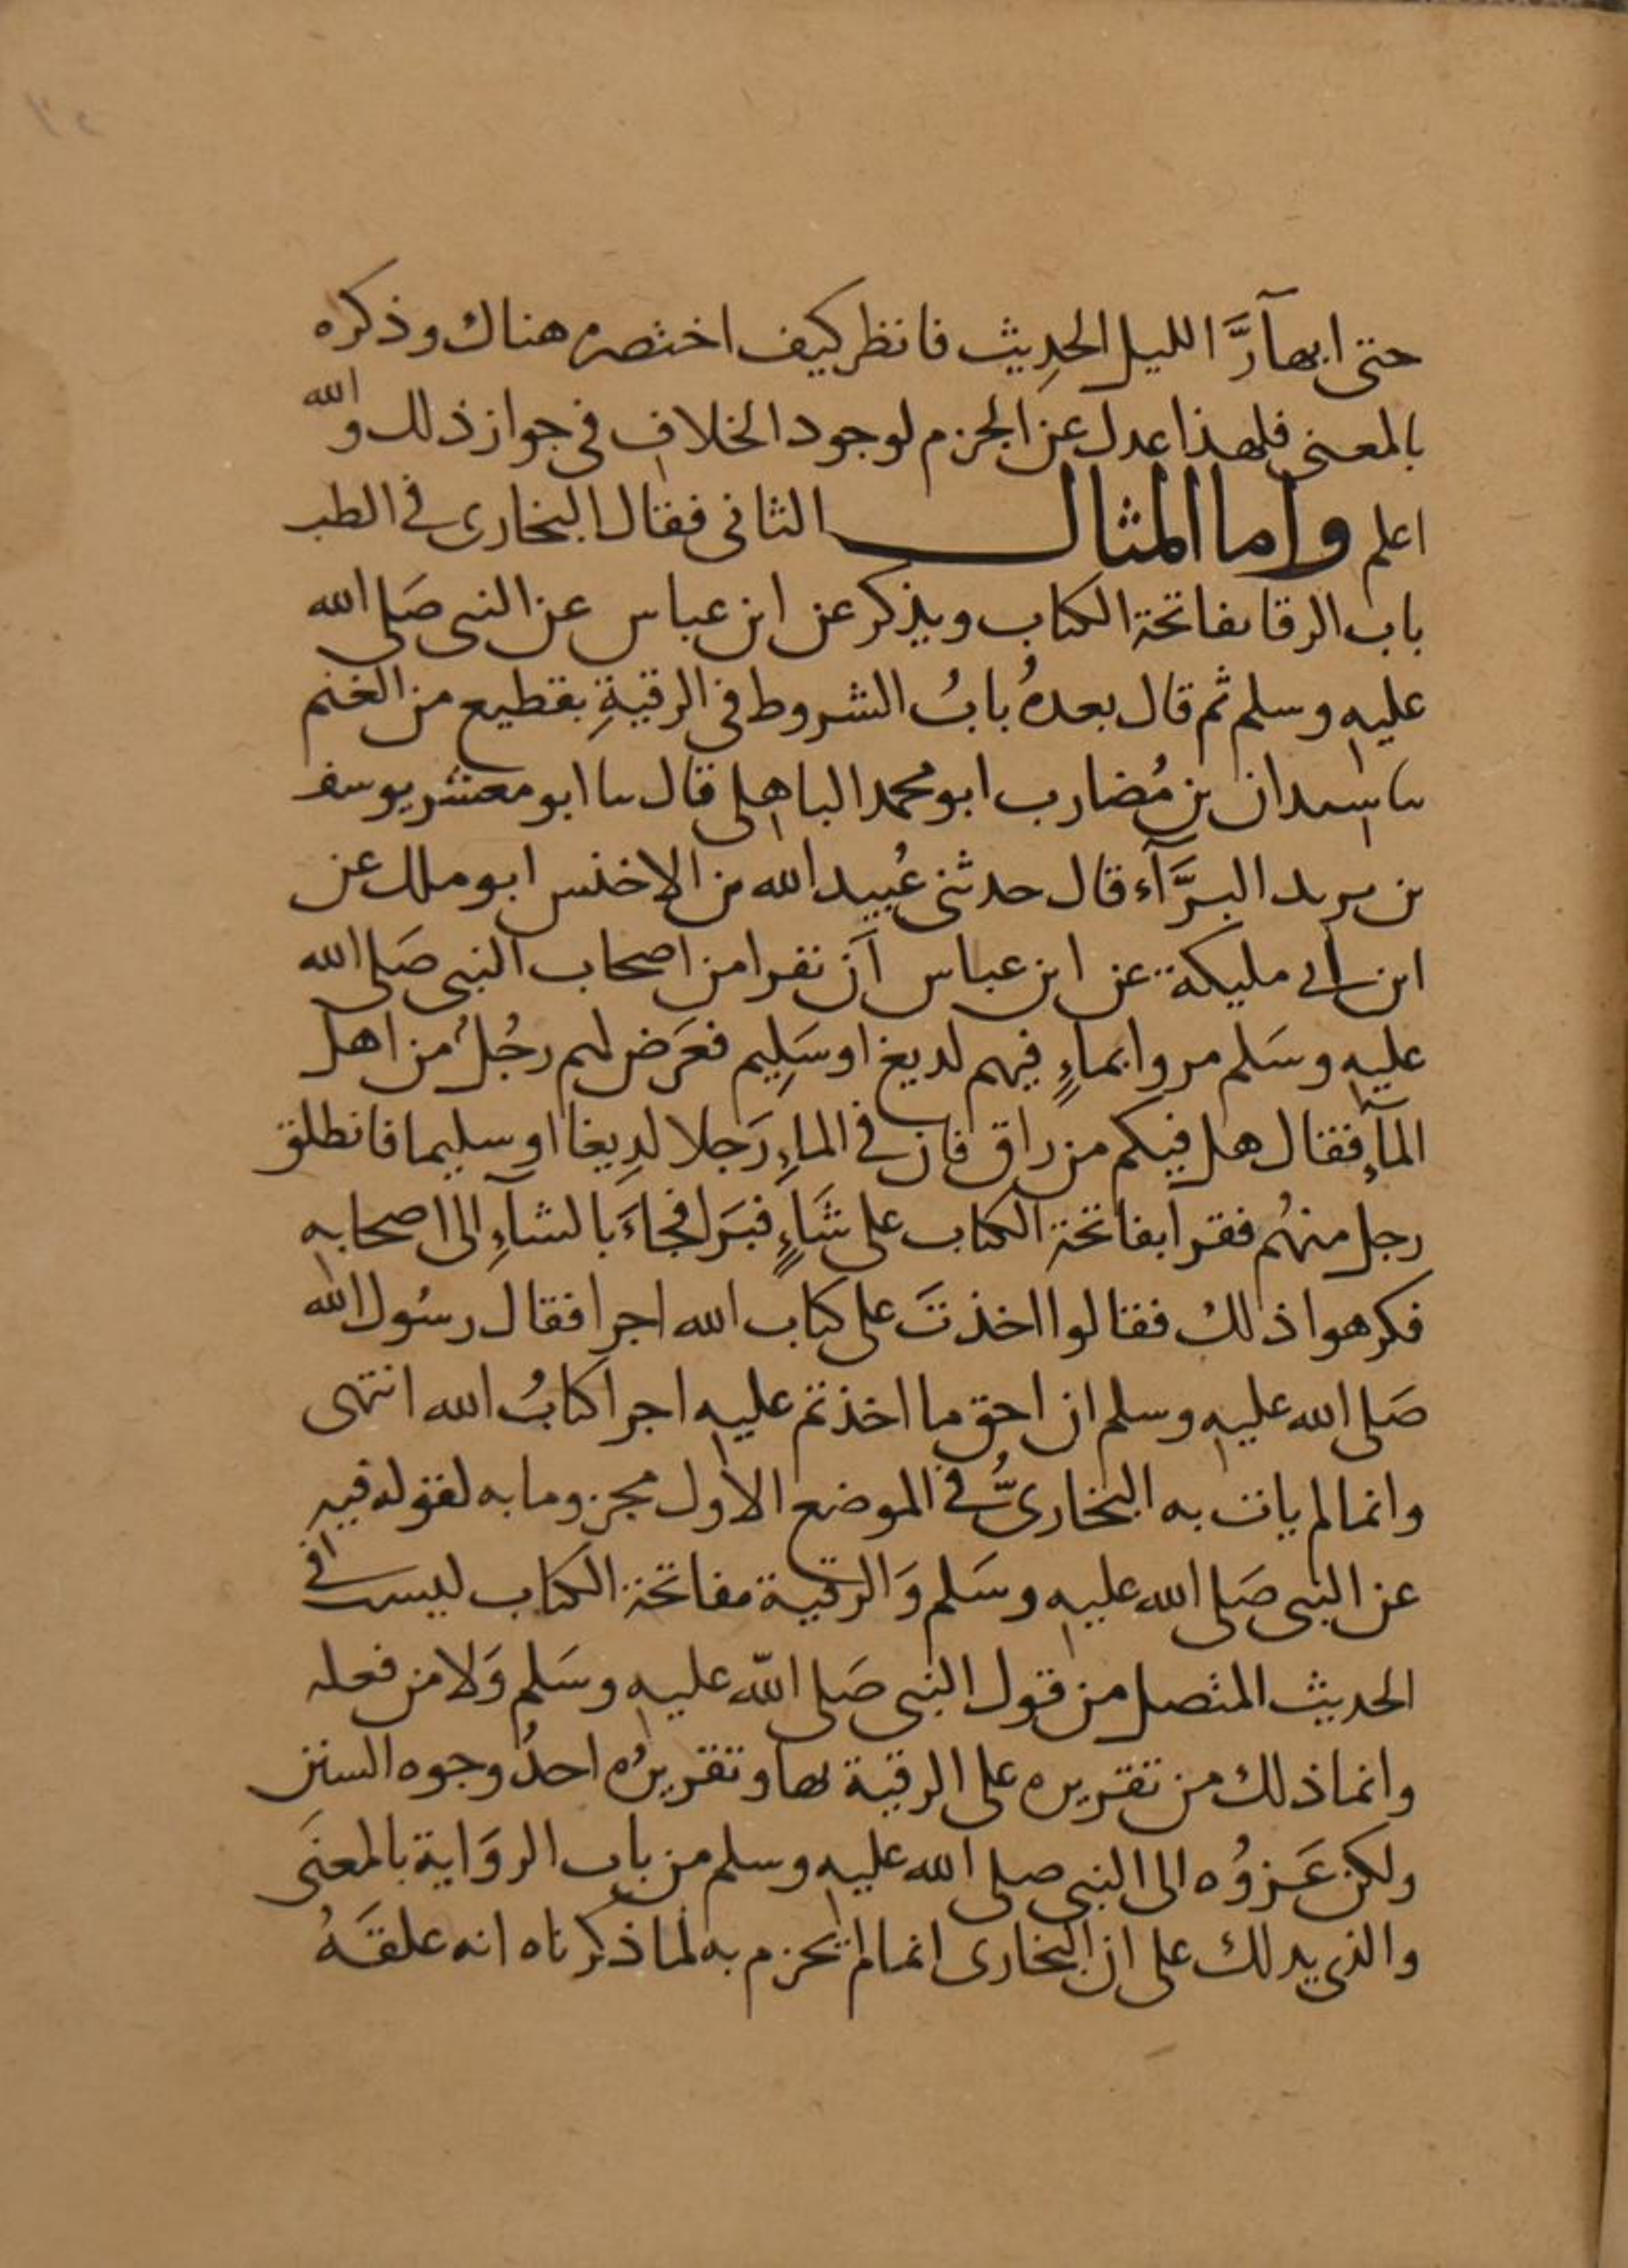 حتى ابهآرَّ الليل الحدِيث فانظر كيف اختصره هناك وذكره
بالمعنى فلهذا عدل عن الجزم لوجود الخلاف في جواز ذلك والله
اعلم واما المثال الثاني فقال البخارى في الطب
باب الرقا بفاتحة الكتاب ويذكر عن ابن عباس عن النبى صَلى الله
عليه وسلم ثم قال بعدهُ بابُ الشروط في الرقيةِ بقطيع من الغنم
سا سيدان بن مُضارب ابو محمد الباهلى قال سا ابو معشر يوسف
بن يريد البرَّآء قال حدثنى عُبيد الله بن الاخنس ابو ملك عن
ابن ابي مليكة عن ابن عباس اَن نفرا من اصحاب النبى صَلى الله
عليه وسَلم مروا بماءٍ فيهم لديغ او سَلِيم فعَرَض لهم رجُلٌ من اهل
المآءِ فقال هل فيكم من راق فان في الماءِ رَجلا لدِيغا او سليما فانطلق
رجل منهُم فقرا بفاتحة الكتاب على شَاءٍ فبَرَا فجاءَ بالشآءِ الى اصحابه
فكرهوا ذلك فقالوا اخذتَ على كتاب الله اجرا فقال رسُول الله
صَلى الله عليه وسلم ان احق ما اخذتم عليه اجرا كتابُ الله انتهى
وانما لم يات به البخارىُّ في الموضع الاول مجزوما به لقوله فيه
عن النبى صَلى الله عليه وسَلم وَالرقية بفاتحة الكتاب ليست في
الحديث المتصل من قول النبى صَلى الله عليه وسَلم وَلا من فعله
وانما ذلك من تقريره على الرقية بها وتقريرُه احدُ وجوه السنن
ولكن عَزوُه الى النبى صلى الله عليه وسلم من باب الروَاية بالمعنَى
والذى يدلك على ان البخارى انما لم يجزم به لما ذكرناه انه علقَهُ